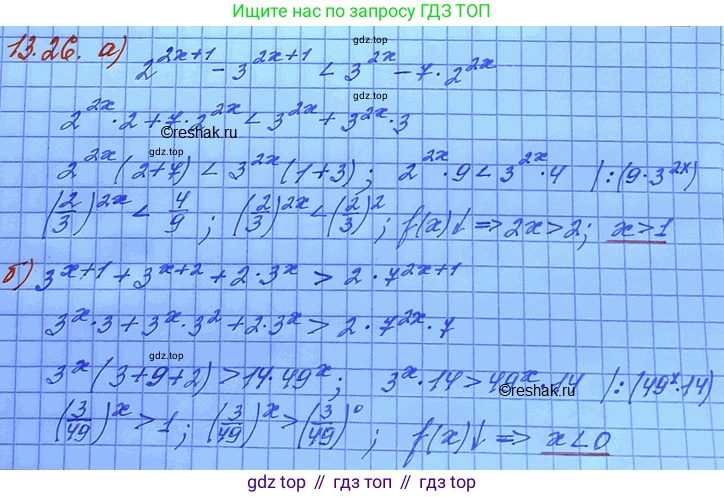 Ищите нас по запросу ГДЗ ТОП
13.26. а) 2^(2x+1) - 3^(2x+1) < 3^(2x) - 7·2^(2x)
гдз.top
2^(2x)·2 + 7·2^(2x) < 3^(2x) + 3^(2x)·3
©reshak.ru
2^(2x)(2+7) < 3^(2x)(1+3); 2^(2x)·9 < 3^(2x)·4 |:(9·3^(2x))
(2/3)^(2x) < 4/9; (2/3)^(2x) < (2/3)^2; f(x)↓ => 2x>2; x>1
гдз.top
б) 3^(x+1) + 3^(x+2) + 2·3^x > 2·7^(2x+1)
3^x·3 + 3^x·3^2 + 2·3^x > 2·7^(2x)·7
гдз.top
3^x(3+9+2) > 14·49^x; 3^x·14 > 49^x·14 |:(49^x·14)
©reshak.ru
(3/49)^x > 1; (3/49)^x > (3/49)^0; f(x)↓ => x<0
гдз.top
gdz.top // гдз.топ // гдз.top